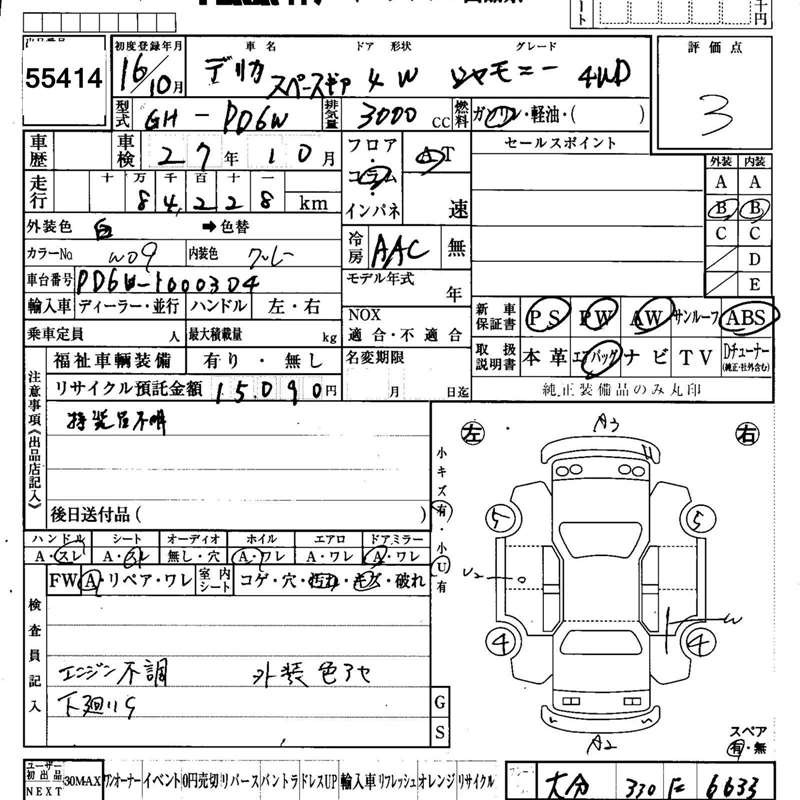 初度登録年月 車名 ドア 形状 グレード 評価点
55414 16/10月 デリカ スペースギア 4W シャモニー 4WD 3
型式 GH-PD6W 排気量 3000 CC 燃料 ガソリン・軽油・( )
車歴 車検 27年 10月 フロア・コラム・インパネ AT 速 セールスポイント
十 万 千 百 十 一
走行 84,228 km
外装 内装
A A
B B
C C
D
E
外装色 白 ➡色替 冷房 AAC 無
カラーNo W09 内装色 グレー
車台番号 PD6W-1000304 モデル年式 年
輸入車 ディーラー・並行 ハンドル 左・右 NOX 適合・不適合
新車保証書 PS PW AW サンルーフ ABS
乗車定員 人 最大積載量 kg
取扱説明書 本革 エアバッグ ナビ TV Dチューナー (純正・社外含む)
福祉車輌装備 有り・無し 名変期限 月 日迄
純正装備品のみ丸印
リサイクル預託金額 15,090円
注意事項《出品店記入》
取説品不明
後日送付品( )
小キズ有・小U有
左 右
A3
5 5
U2
W
4 4
A2
スペア
有・無
ハンドル シート オーディオ ホイル エアロ ドアミラー
A・スレ A・スレ 無し・穴 A・ワレ A・ワレ A・ワレ
FW A・リペア・ワレ 室内シート コゲ・穴・汚れ・キズ・破れ
検査員記入
エンジン不調 外装色アセ
下廻りS
G
S
ユーザー初出品 NEXT 30MAX ワンオーナー イベント 0円売切 リバース バントラ ドレスUP 輸入車 リフレッシュ オレンジ リサイクル
大分 330 に 6633